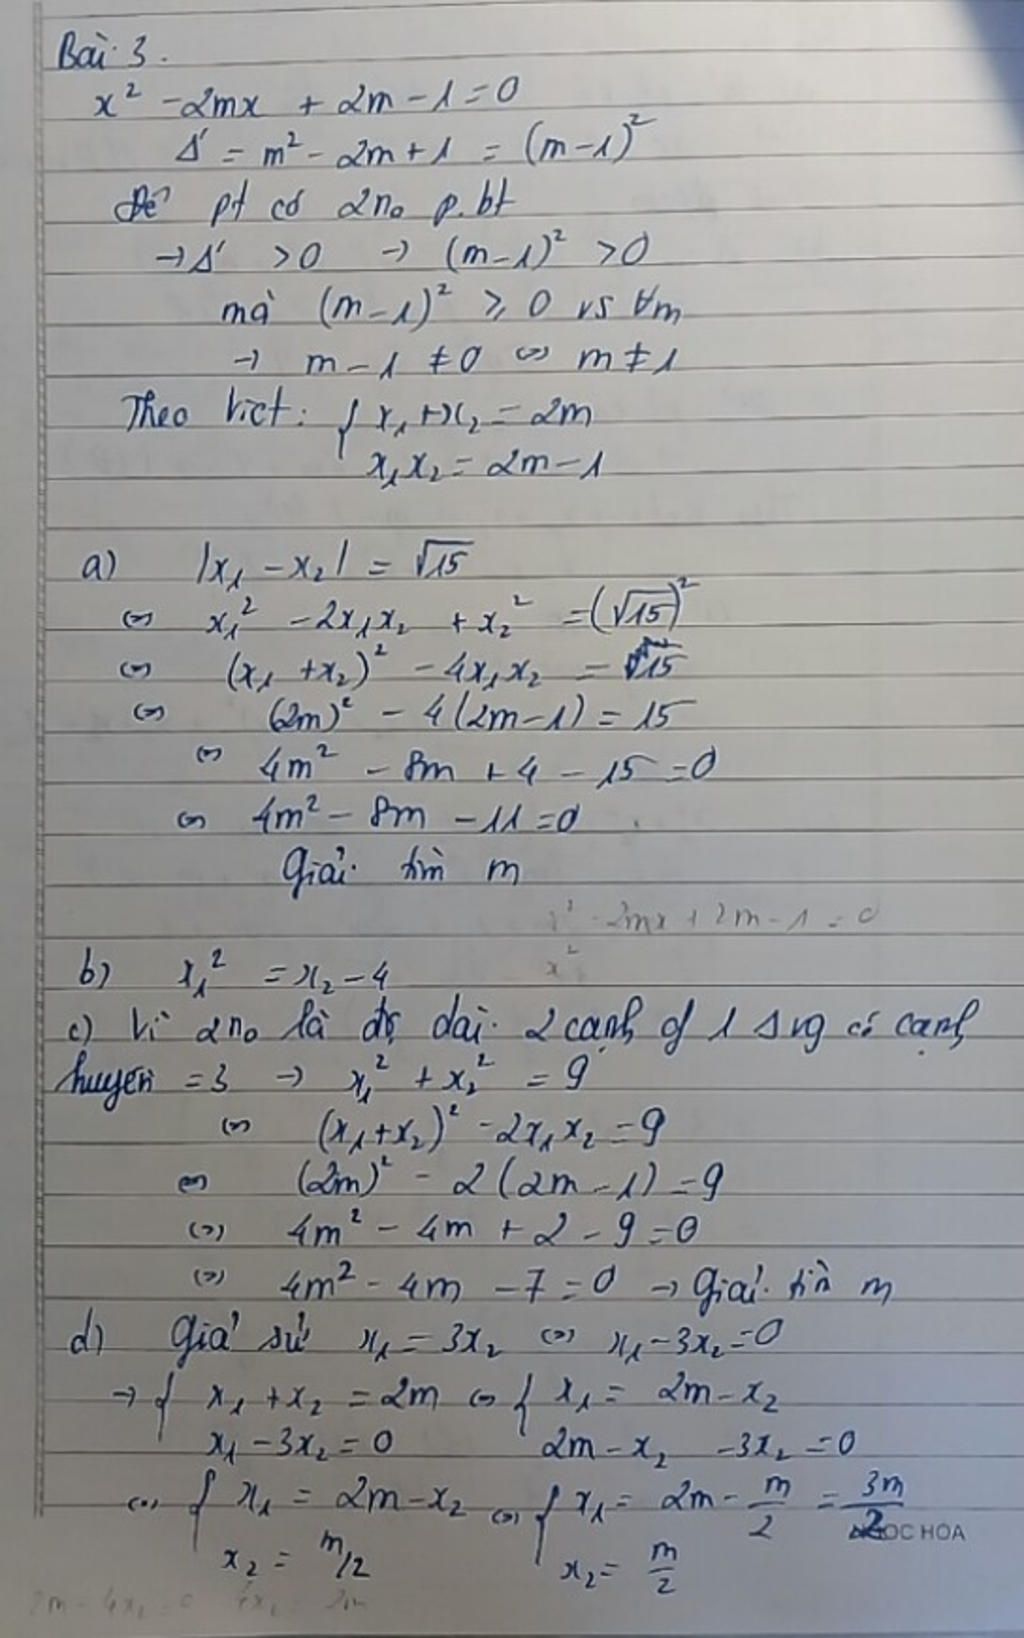 Bài 3.
x² - 2mx + 2m - 1 = 0
Δ' = m² - 2m + 1 = (m-1)²
Để pt có 2n₀ p.bt
→ Δ' > 0 → (m-1)² > 0
mà (m-1)² ≥ 0 vs ∀m
→ m - 1 ≠ 0 <=> m ≠ 1
Theo Viet: { x₁ + x₂ = 2m
x₁x₂ = 2m - 1
a) |x₁ - x₂| = √15
<=> x₁² - 2x₁x₂ + x₂² = (√15)²
<=> (x₁ + x₂)² - 4x₁x₂ = 15
<=> (2m)² - 4(2m-1) = 15
<=> 4m² - 8m + 4 - 15 = 0
<=> 4m² - 8m - 11 = 0
Giải tìm m
x² - 2mx + 2m - 1 = 0
x²
b) x₁² = x₂ - 4
c) Vì 2n₀ là độ dài 2 cạnh of 1 Δ vg có cạnh
huyền = 3 → x₁² + x₂² = 9
<=> (x₁+x₂)² - 2x₁x₂ = 9
<=> (2m)² - 2(2m-1) = 9
<=> 4m² - 4m + 2 - 9 = 0
<=> 4m² - 4m - 7 = 0 → Giải tìm m
d) Giả sử x₁ = 3x₂ <=> x₁ - 3x₂ = 0
→ { x₁ + x₂ = 2m <=> { x₁ = 2m - x₂
x₁ - 3x₂ = 0 2m - x₂ - 3x₂ = 0
<=> { x₁ = 2m - x₂ <=> { x₁ = 2m - m/2 = 3m/2
x₂ = m/2 x₂ = m/2
NGOC HOA
2m - 4x₂ = 0 4x₂ = 2m